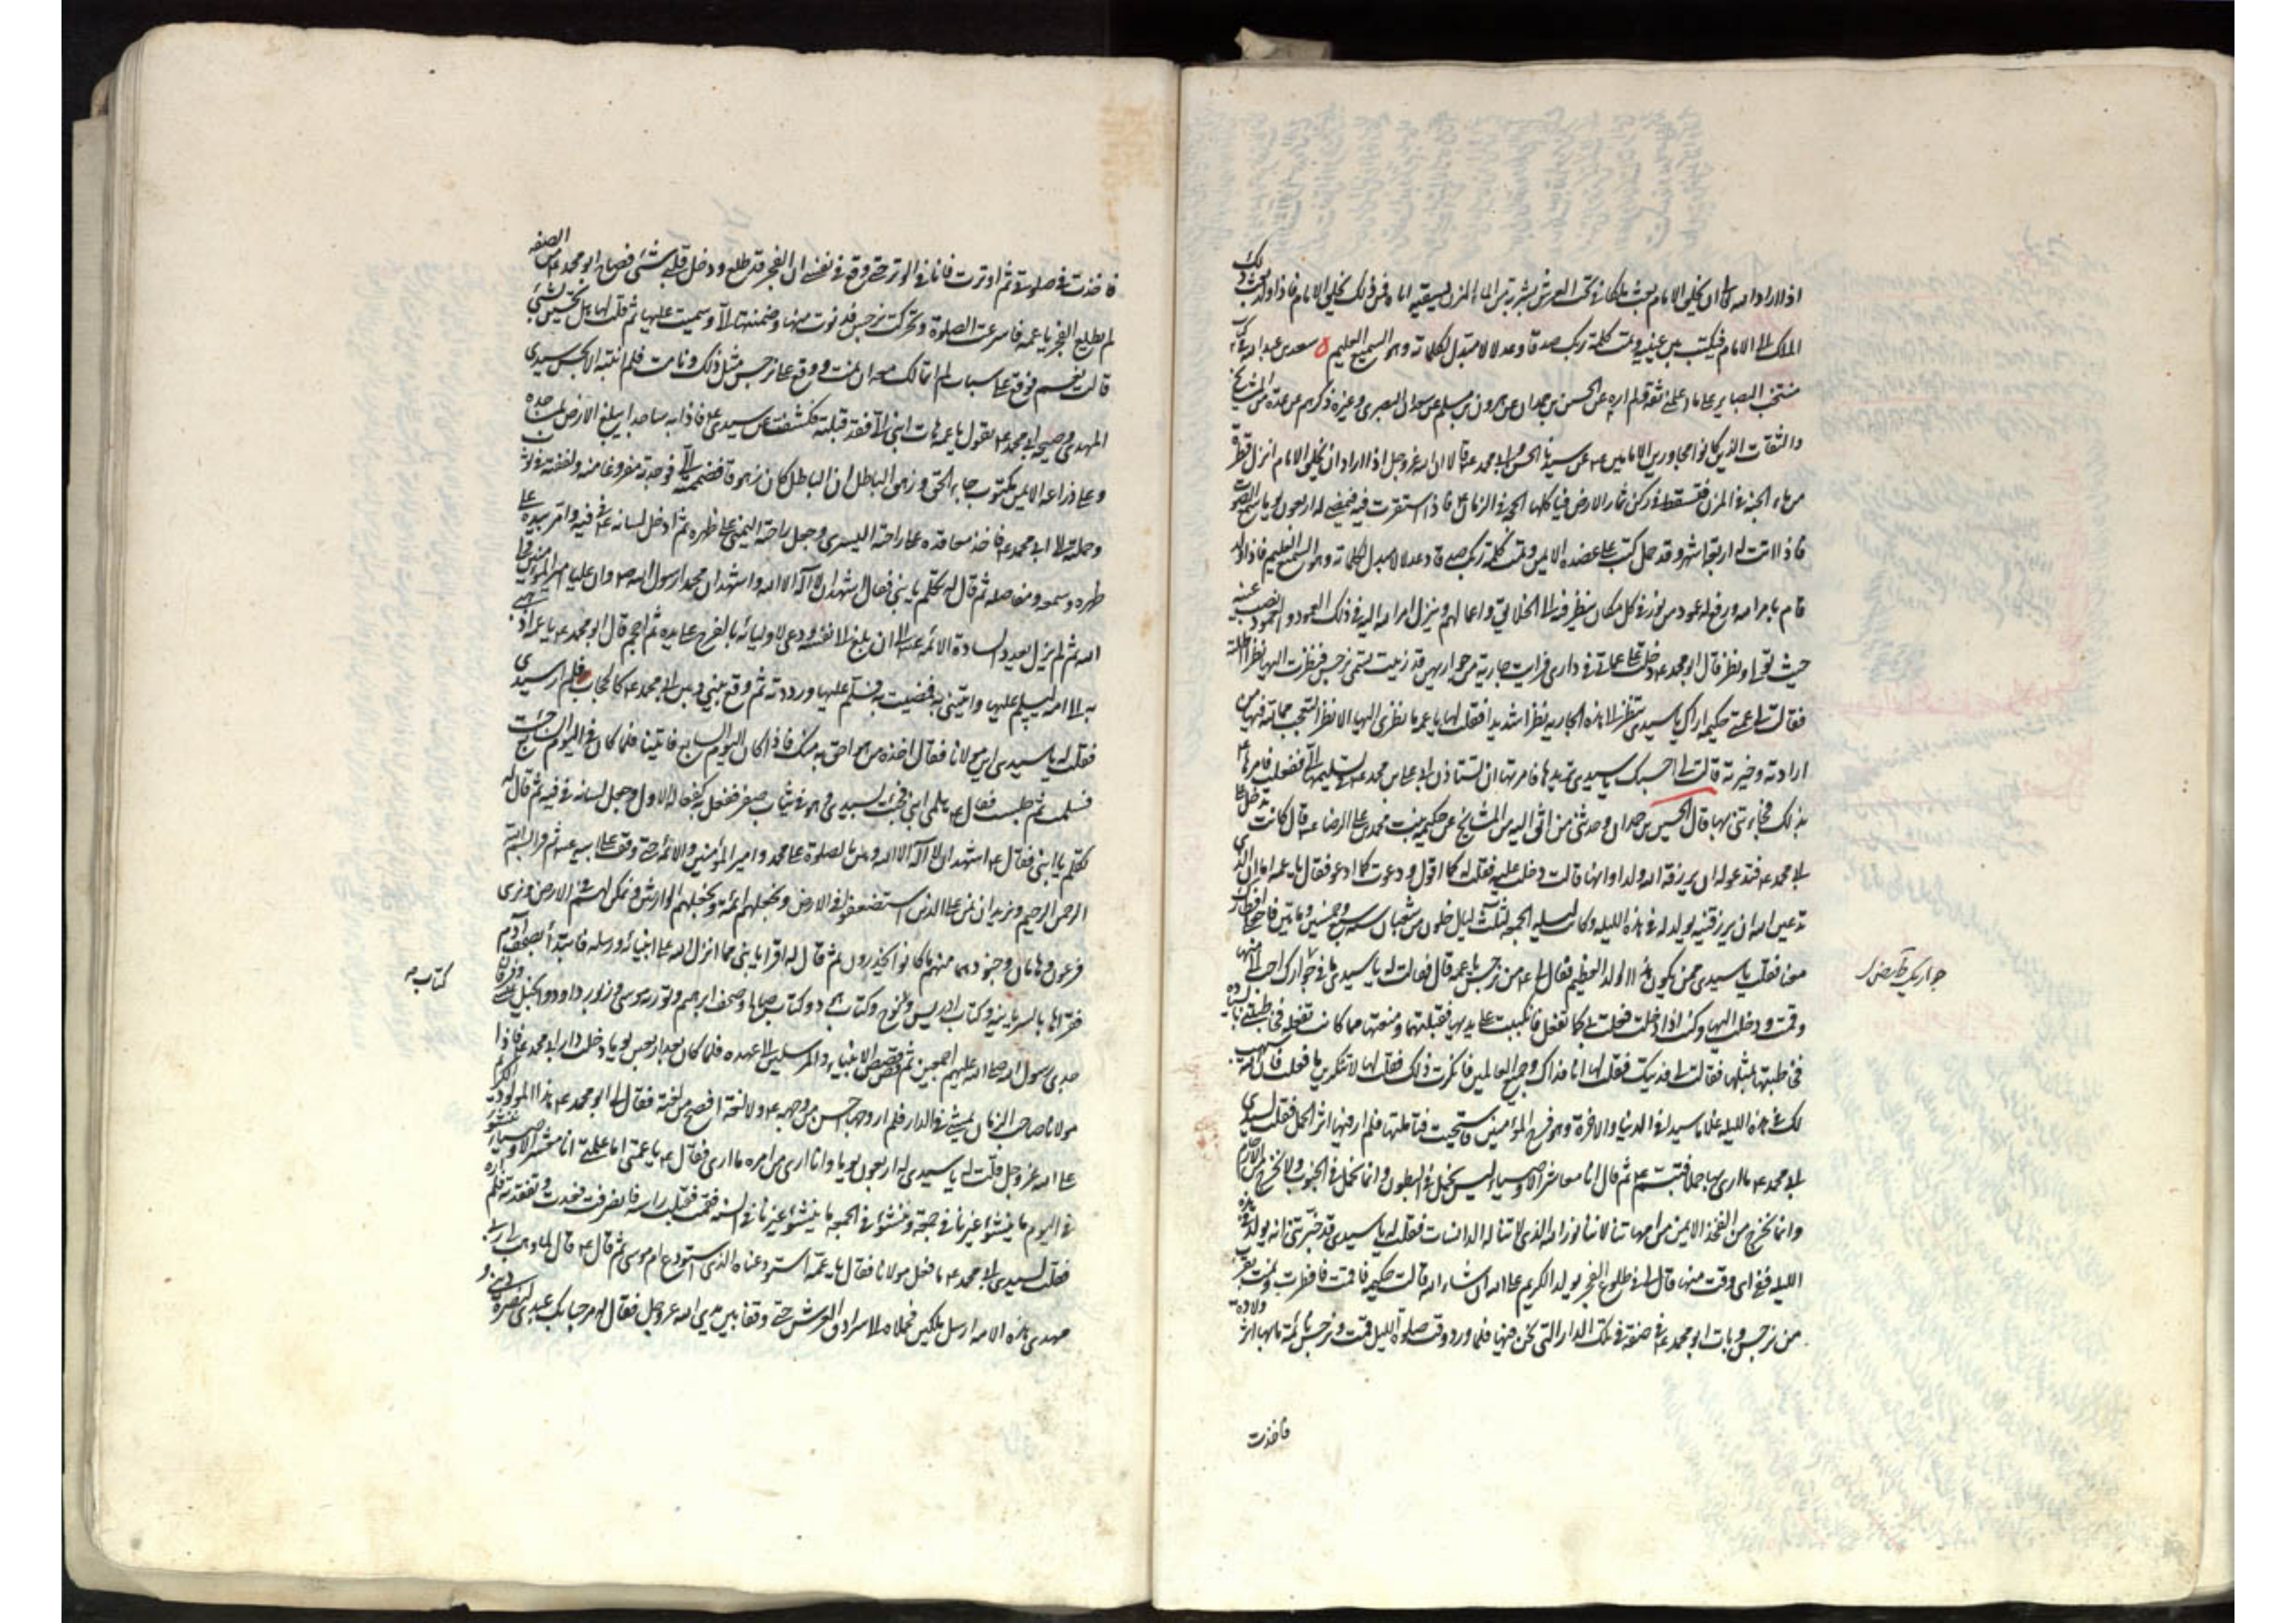 اذا اراد الله تعالى ان يخلق الامام بعث ملكا من تحت العرش بشربة من الماء المزن ليسقيه اباه فمن ذلك يخلق الامام فاذا ولد بعث ذلك
الملك الى الامام فيكتب بين عينيه وتمت كلمة ربك صدقا وعدلا لا مبدل لكلماته وهو السميع العليم ه سعد بن عبد الله
منتخب البصاير على ما عن الحسن بن حمدان عن هرون بن مسلم عن سعدان البصرى وغيره ذكرهم عن عدة من المشايخ
والثقات الذين كانوا مجاورين الامامين ع عن سيدنا ابى الحسن وابى محمد ع قالا ان الله عز وجل اذا اراد ان يخلق الامام انزل قطرة
من ماء الجنة فى المزن فتسقط فى ثمار الارض فياكلها الحجة فى الزمان ع فاذا استقرت فيه فيمضى له اربعون يوما سمع الصوت
فاذا اتت له اربعة اشهر وقد حمل كتب على عضده الايمن وتمت كلمة ربك صدقا وعدلا لا مبدل لكلماته وهو السميع العليم فاذا ولد
قام بامر الله ورفع له عمود من نور فى كل مكان ينظر فيه الى الخلائق واعمالهم وينزل امر الله اليه فى ذلك العمود والعمود نصب عينه
حيث تولى ونظر قال ابو محمد ع دخلت على عماتى فى دارى فرايت جارية من جواريهن قد زينت تسمى نرجس فنظرت اليها نظرا اطلته
فقالت لى عمتى حكيمه اراك يا سيدى تنظر الى هذه الجاريه نظرا شديدا فقلت لها يا عمه ما نظرى اليها الا نظر التعجب مما لله فيها من
ارادته وخيرته قالت لى احسبك يا سيدى تريدها فامرتها ان تستاذن ابى على بن محمد ع فى تسليمها الى ففعلت فامرها ع
بذلك فجاءتنى بها قال الحسين بن حمدان وحدثنى من اثق اليه من المشايخ عن حكيمه بنت محمد بن على الرضا ع قال كانت تدخل على
ابى محمد ع فتدعو له ان يرزقه الله ولدا وانها قالت دخلت عليه فقلت له كما اقول ودعوت كما ادعو فقال يا عمه اما ان الذى
تدعين الله ان يرزقنيه يولد فى هذه الليله وكانت ليله الجمعه لثلث ليال خلون من شعبان سنه سبع وخمسين ومائتين فاجعلى افطارك
معنا فقلت يا سيدى ممن يكون هذا الولد العظيم فقال لى ع من نرجس يا عمه قال فقالت له يا سيدى ما فى جوارك احب الى منها
جواريك
وقمت ودخلت اليها وكنت اذا دخلت فعلت بى كما تفعل فانكببت على يديها فقبلتهما ومنعتها مما كانت تفعله فخاطبتنى بالسياده
فخاطبتها بمثلها فقالت لى فديتك فقلت لها انا فداك وجميع العالمين فانكرت ذلك فقلت لها لا تنكرين ما فعلت فان الله سيهب
لك فى هذه الليله غلاما سيدا فى الدنيا والاخرة وهو فرج المؤمنين فاستحيت فتاملتها فلم ار فيها اثر الحمل فقلت لسيدى
ابى محمد ع ما ارى بها حملا فتبسم ع ثم قال انا معاشر الاوصياء ليس نحمل فى البطون وانما نحمل فى الجنوب ولا نخرج من الارحام
وانما نخرج من الفخذ الايمن من امهاتنا لاننا نور الله الذى لا تناله الدانسات فقلت له يا سيدى قد خبرتنى انه يولد فى هذه
الليله ففى اى وقت منها قال لى فى طلوع الفجر يولد الكريم على الله ان شاء الله قالت حكيمه فاقمت فافطرت ونمت بقرب
من نرجس وبات ابو محمد ع فى صفه فى تلك الدار التى نحن فيها فلما ورد وقت صلوة الليل قمت ونرجس نائمة ما بها اثر ولادة
فاخذت
فاخذت فى صلوتى ثم اوترت فانا فى الوتر حتى وقع فى نفسى ان الفجر قد طلع ودخل قلبى شىء فصاح ابو محمد ع من الصفه
لم يطلع الفجر يا عمه فاسرعت الصلوة وتحركت نرجس فدنوت منها وضممتها الى وسميت عليها ثم قلت لها هل تحسين بشىء
قالت نعم فوقع على سبات لم اتمالك معه ان نمت ووقع على نرجس مثل ذلك ونامت فلم انتبه الا بحس سيدى
المهدى وصيحه ابى محمد ع يقول يا عمه هات ابنى الى فقد قبلته فكشفت عن سيدى ع فاذا به ساجدا يبلغ الارض بمساجده
وعلى ذراعه الايمن مكتوب جاء الحق وزهق الباطل ان الباطل كان زهوقا فضممته الى فوجدته مفروغا منه ولففته فى ثوب
وحملته الى ابى محمد ع فاخذه فاقعده على راحته اليسرى وجعل راحته اليمنى على ظهره ثم ادخل لسانه ع فى فيه وامر بيده على
ظهره وسمعه ومفاصله ثم قال له تكلم يا بنى فقال اشهد ان لا اله الا الله واشهد ان محمدا رسول الله ص وان عليا امير المؤمنين ولى
الله ثم لم يزل يعدد السادة الائمه ع الى ان بلغ الى نفسه ودعى لاوليائه بالفرج على يده ثم احجم قال ابو محمد ع يا عمه اذهبى
به الى امه ليسلم عليها واتينى به فمضيت به فسلم عليها ورددته ثم وقع بينى وبين ابى محمد ع كالحجاب فلم ار سيدى
فقلت له يا سيدى اين مولانا فقال اخذه من هو احق به منك فاذا كان اليوم السابع فاتينا فلما كان فى اليوم السابع جئت
فسلمت ثم جلست فقال ع هلمى ابنى فجئت بسيدى وهو فى ثياب صفر ففعل به كفعاله الاول وجعل لسانه فى فيه ثم قال له
تكلم يا بنى فقال ع اشهد ان لا اله الا الله وثنى بالصلوة على محمد وامير المؤمنين والائمة حتى وقف على ابيه ع ثم قرا بسم الله
الرحمن الرحيم ونريد ان نمن على الذين استضعفوا فى الارض ونجعلهم ائمة ونجعلهم الوارثين ونمكن لهم فى الارض ونرى
فرعون وهامان وجنودهما منهم ما كانوا يحذرون ثم قال له اقرا يا بنى مما انزل الله على انبيائه ورسله فابتدأ بصحف آدم
كتاب
فقراها بالسريانيه وكتاب ادريس ونوح وكتاب هود وكتاب صالح وصحف ابرهيم وتورية موسى وزبور داود وانجيل عيسى وفرقان
جدى رسول الله صلى الله عليهم اجمعين ثم قص قصص الانبياء والمرسلين الى عهده فلما كان بعد اربعين يوما دخلت دار ابى محمد ع فاذا
مولانا صاحب الزمان يمشى فى الدار فلم ار وجها احسن من وجهه ع ولا لغة افصح من لغته فقال لى ابو محمد ع هذا المولود الكريم
على الله عز وجل قلت له يا سيدى له اربعون يوما وانا ارى من امره ما ارى فقال ع يا عمتى اما علمتى انا معشر الاوصياء ننشؤ
فى اليوم ما ينشؤ غيرنا فى جمعة وننشؤ فى الجمعه ما ينشؤ غيرنا فى السنه فقمت فقبلت راسه فانصرفت فعدت وتفقدته فلم اره
فقلت لسيدى ابى محمد ع ما فعل مولانا فقال يا عمه استودعناه الذى استودع ام موسى ثم قال ع قال لما وهب لى ربى
مهدى هذه الامه ارسل ملكين فحملاه الى سرادق العرش حتى وقفا بين يدى الله عز وجل فقال له مرحبا بك عبدى لنصرة دينى و